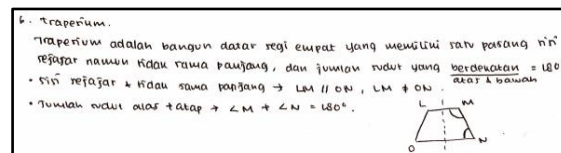 6. Traperium.
Traperium adalah bangun datar segi empat yang memiliki satu pasang sisi
sejajar namun tidak sama panjang, dan jumlah sudut yang berdekatan = 180°
atas & bawah
• sisi sejajar & tidak sama panjang → LM // ON, LM ≠ ON.
• Jumlah sudut alas + atap → ∠M + ∠N = 180°.
L M
O N